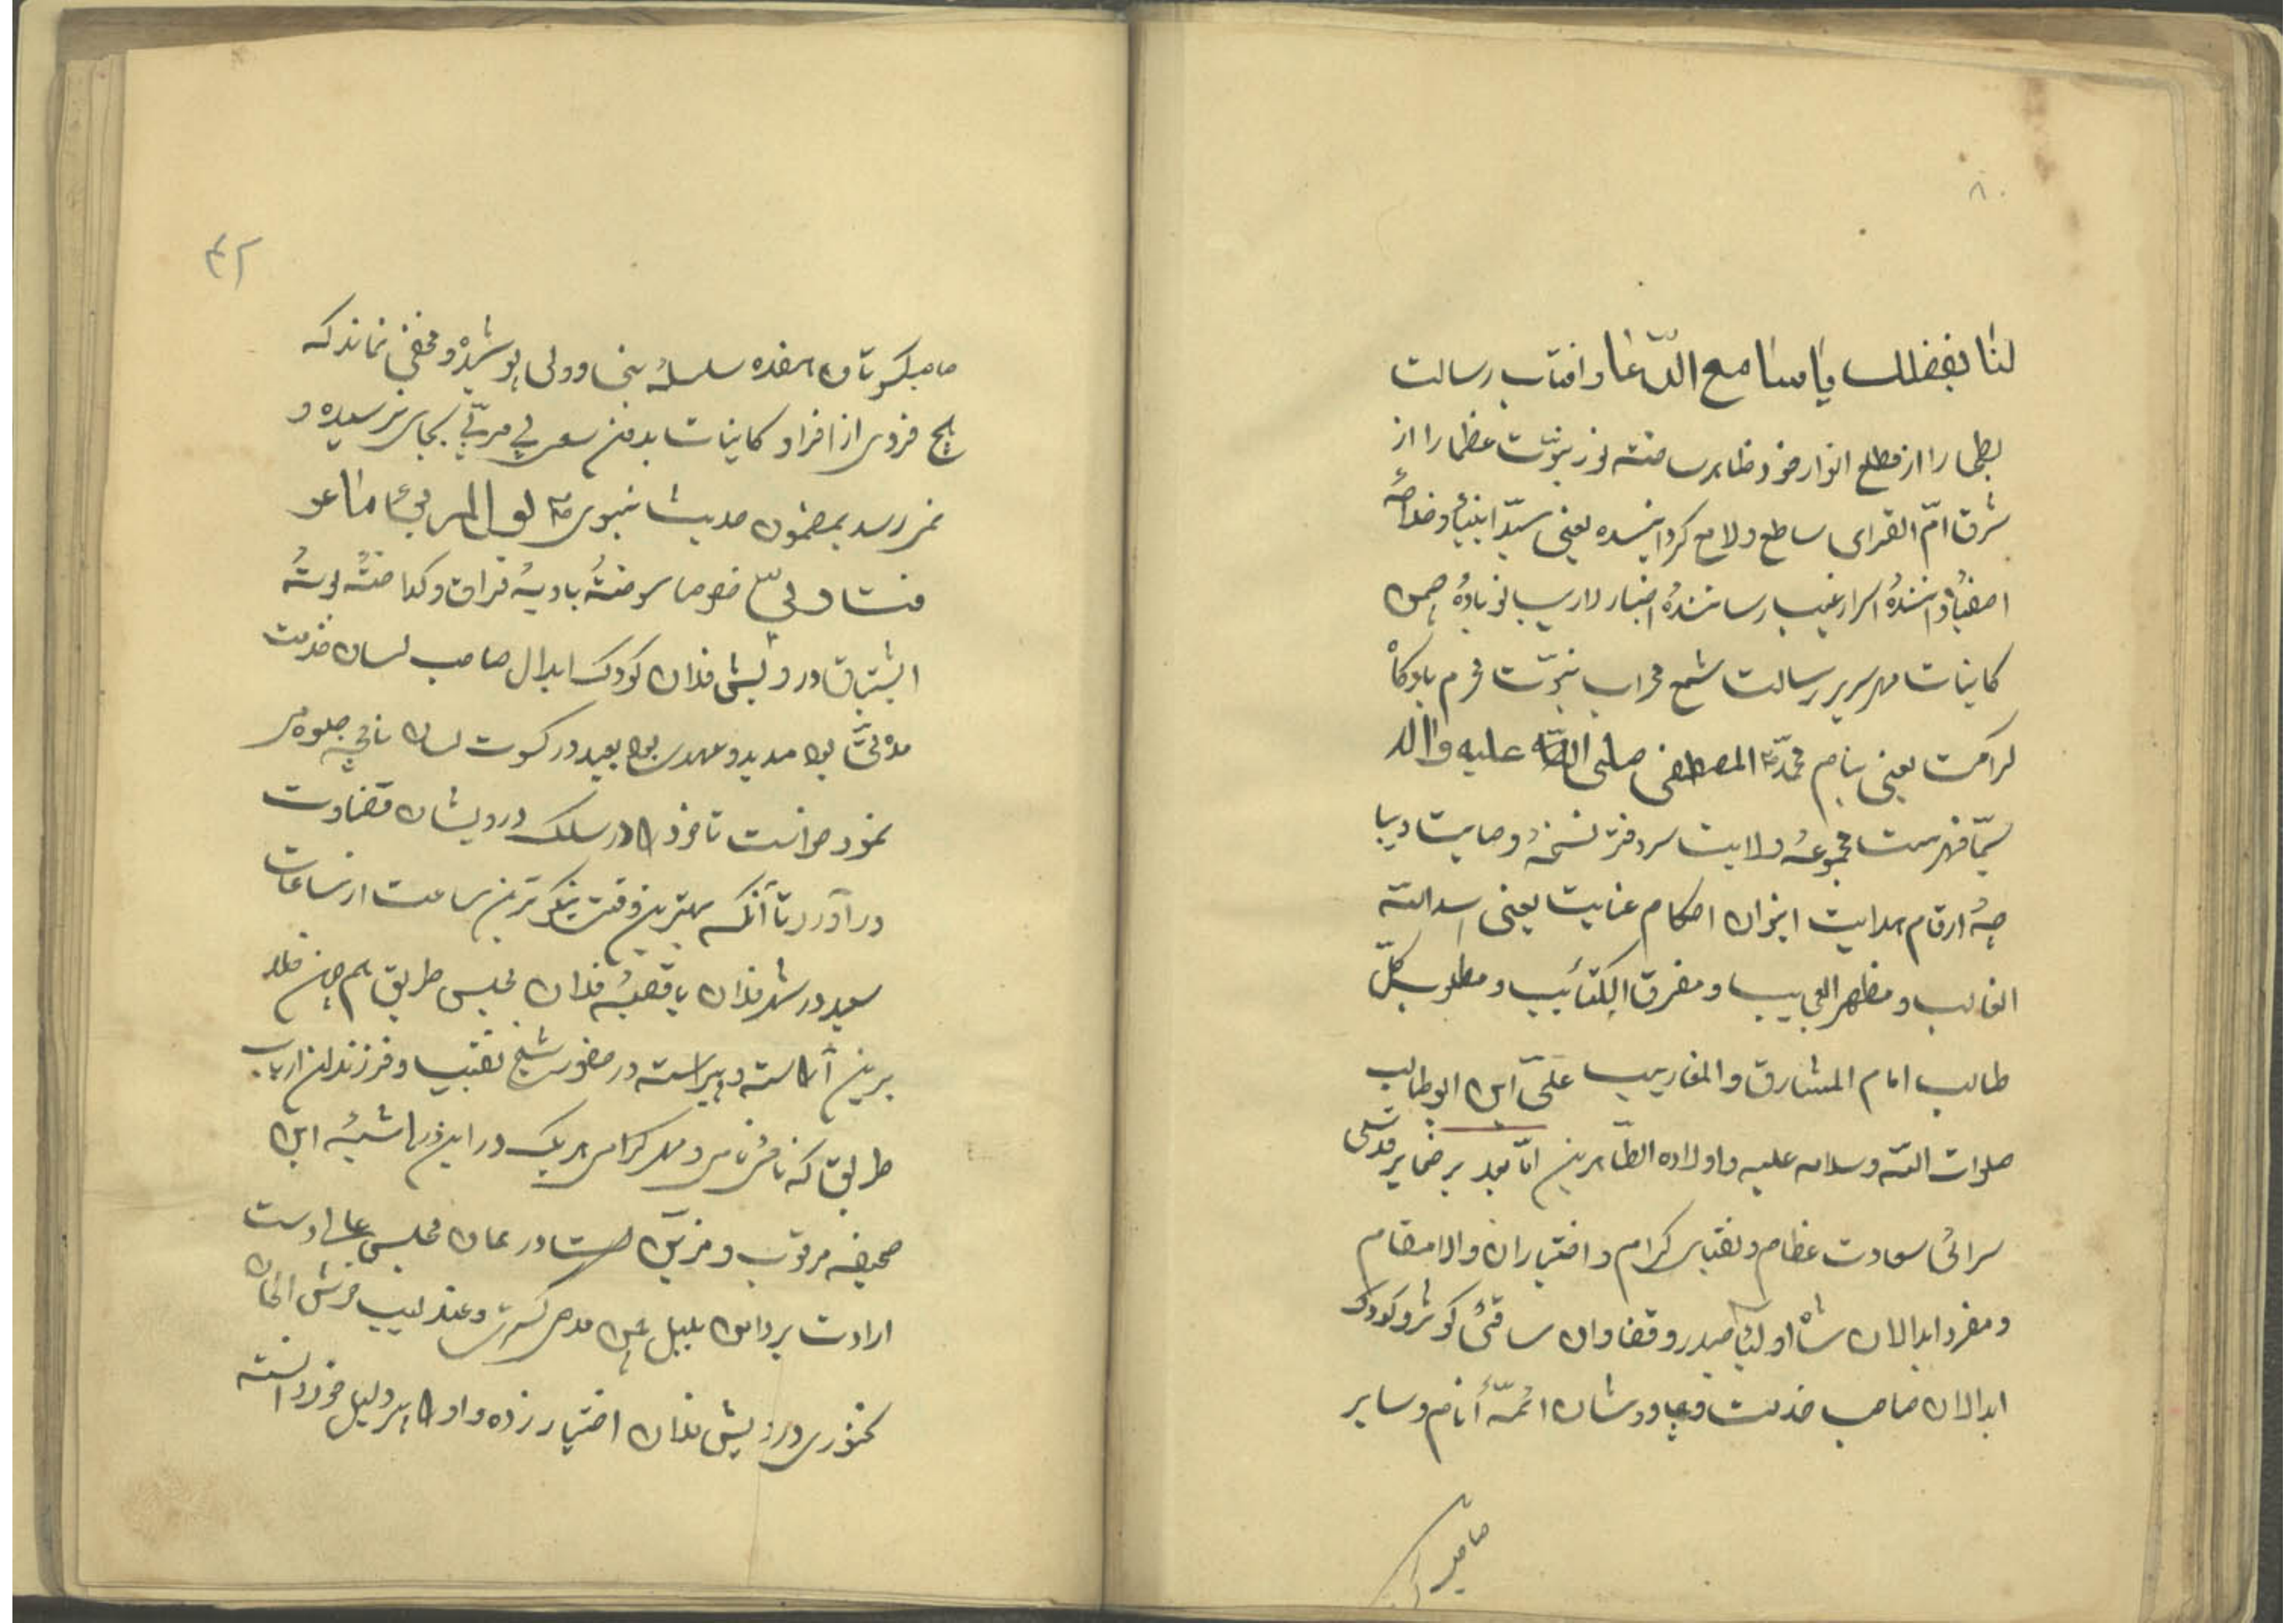 ۸۰
لنا بفضلك یا سامع الدّعا و افتاب رسالت
بطحا را از مطلع انوار خود ظاهر ساخته نور نبوّت عظما را از
شرق امّ القرای ساطع و لامع کردانیده یعنی سیّد انبیاء و خلاصهٔ
اصفیاء دانندهٔ اسرار غیب رسانندهٔ اخبار لاریب نوبادهٔ چمن
کاینات مهر سریر رسالت شمع محراب نبوّت محرم بارکاه
کرامت یعنی بنام محمّد المصطفی صلی اللّه علیه واله
سیّما فهرست مجموعهٔ ولایت سر دفتر نسخهٔ وصایت دیبا
چهٔ ارقام هدایت ایوان احکام عنایت یعنی اسد اللّه
الغالب و مظهر العجایب و مفرق الکتائب و مطلوب کلّ
طالب امام المشارق و المغارب علیّ ابن ابو طالب
صلوات اللّه و سلامه علیه و اولاده الطّاهرین امّا بعد بر ضمایر قدسی
سرائی سعادت عظام و نقبای کرام و اختیاران والا مقام
و مفرد ابدالان شاه اولیاء حیدر و قضاوان ساقئ کوثر و کودک
ابدالان صاحب خدمت و چاودشان ائمّهٔ أنام و سایر
صاحبد
۴۲
صاحبکسوتان هفده سلسلهٔ بنی و ولی پوشیده و مخفی نماند که
هیچ فردی از افراد کاینات بدون سعی مربّی بجای نرسیده و
نمی رسد بمضمون حدیث نبوی لولا المربّی ما عر
فت ربی خصوصا سوختهٔ بادیهٔ فراق و کداختهٔ بوتهٔ
اشتیاق درویش فلان کودک ابدال صاحب لسان خدمت
مدّتی بود مدید و عهدی بود بعید در کسوت لسان ناقچه جلوه می
نمود می خواست تا خود را در سلک درویشان قضاوت
در آورد تا آنکه بهترین وقت و نیکو ترین ساعت از ساعات
سعید در شهر فلان یا قصبهٔ فلان مجلس طریق هم چون خلد
برین آراسته و پیراسته در حضور شیخ نقیب و فرزندان ارباب
طریق که نام نامی و مهر کرامی هر یک در این ذیل حاشیهٔ این
صحیفه مرقوب و مزیّن است در عمان مجلس عالی دست
ارادت بر دامن بلبل چمن مدح کستری و عندلیب خوش الحان
سخنوری درویش فلان اختیار زده و او را پیر دلیل خود دانسته